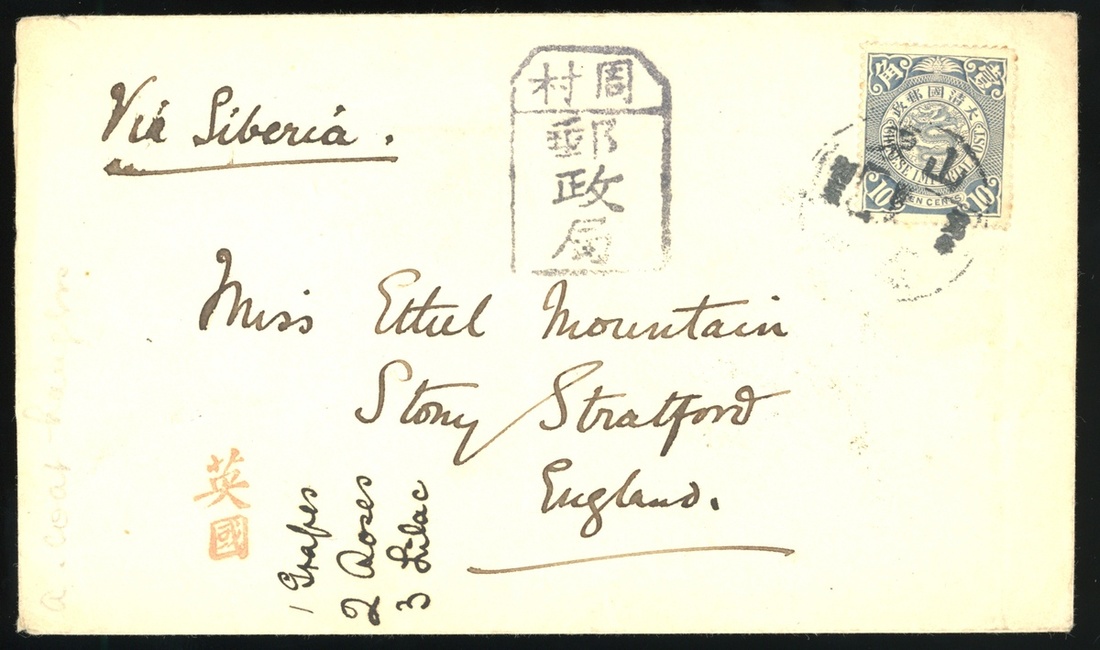 Via Siberia.
周村
郵政局
壹 分
大清國郵政
CHINESE IMPERIAL POST
10 TEN CENTS 10
山
Miss Ethel Mountain
Stony Stratford
England.
英國
1 Grapes
2 Roses
3 Lilac